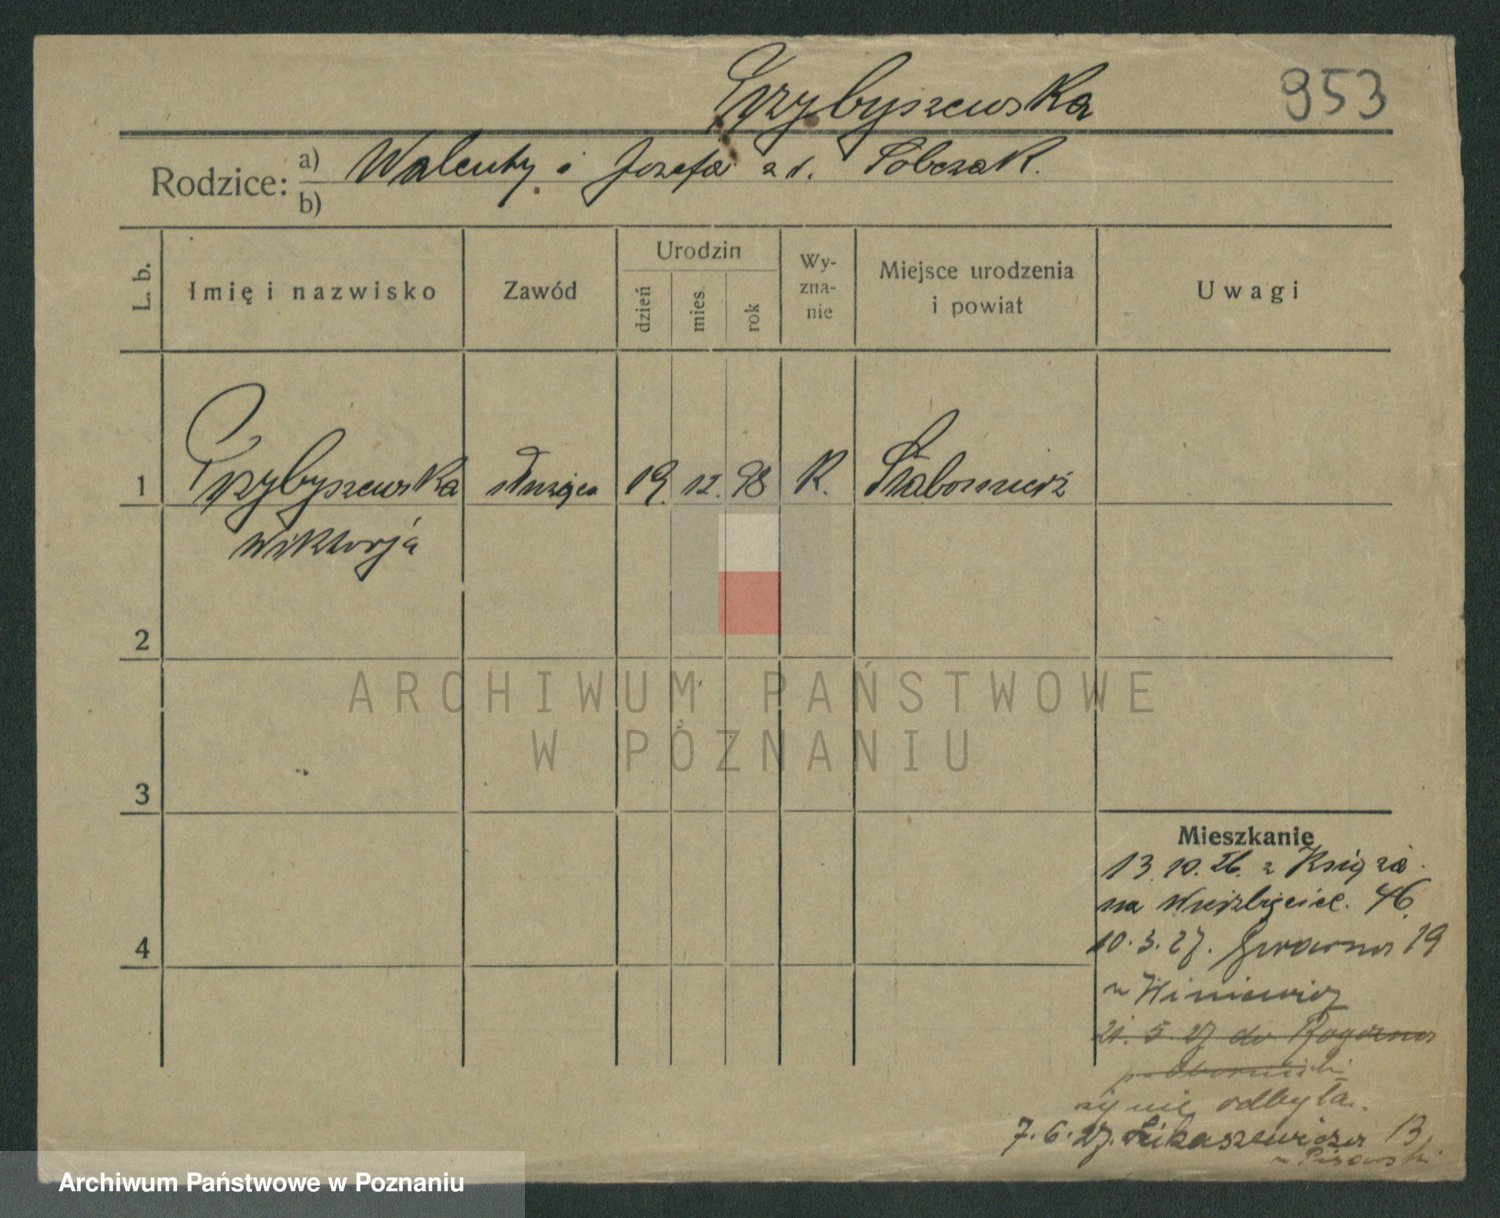 Przybyszewska 953
Rodzice: a) Walenty i Jozefa z d. Sobczak.
b)
L. b. Imię i nazwisko Zawód Urodzin dzień mies. rok Wy-zna-nie Miejsce urodzenia i powiat Uwagi
1 Przybyszewska służąca 19. 12. 98 R. Słabomierz
Wiktorja
2
ARCHIWUM PAŃSTWOWE
W POZNANIU
3
Mieszkanie
13. 10. 26. z Książa
na Wierzbięcice. 46.
10. 3. 27. Gwarna 19
u Winiewicz
21. 5. 27 do Rogozna
p. Obornicki
nie odbyła.
7. 6. 27. Łukaszewicza 13
4
Archiwum Państwowe w Poznaniu